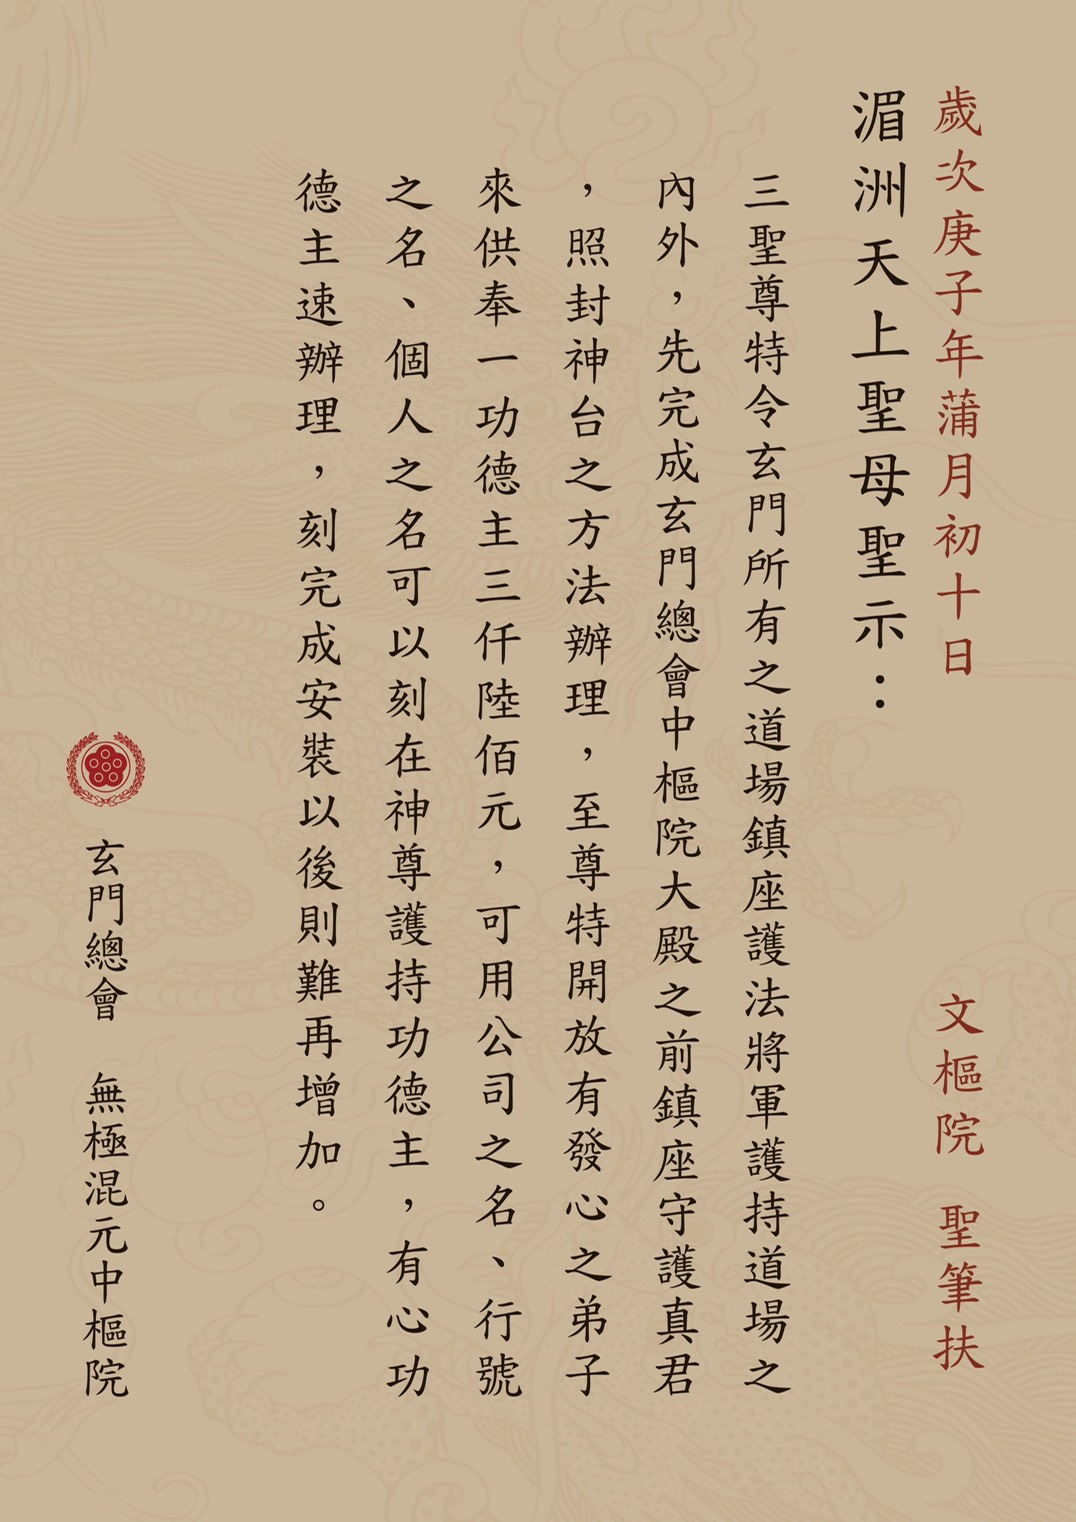 歲次庚子年蒲月初十日　文樞院　聖筆扶
湄洲天上聖母聖示：
三聖尊特令玄門所有之道場鎮座護法將軍護持道場之
內外，先完成玄門總會中樞院大殿之前鎮座守護真君
，照封神台之方法辦理，至尊特開放有發心之弟子
來供奉一功德主三仟陸佰元，可用公司之名、行號
之名、個人之名可以刻在神尊護持功德主，有心功
德主速辦理，刻完成安裝以後則難再增加。
玄門總會　無極混元中樞院